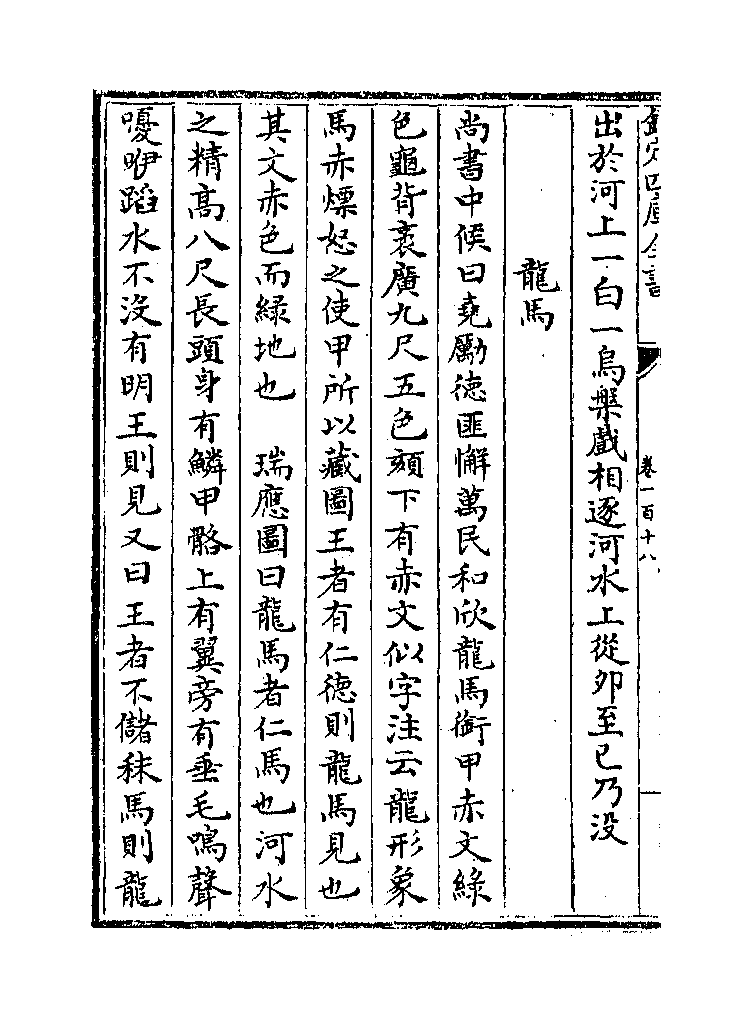 欽定四庫全書
卷一百十八
出於河上一白一烏槃戲相逐河水上從夘至已乃没
龍馬
尚書中候曰堯勵徳匪懈萬民和欣龍馬銜甲赤文緑
色龜背袤廣九尺五色頦下有赤文似字注云龍形象
馬赤熛怒之使甲所以藏圖王者有仁徳則龍馬見也
其文赤色而緑地也　瑞應圖曰龍馬者仁馬也河水
之精髙八尺長頭身有鱗甲骼上有翼旁有垂毛鳴聲
嚘咿蹈水不没有明王則見又曰王者不儲秣馬則龍